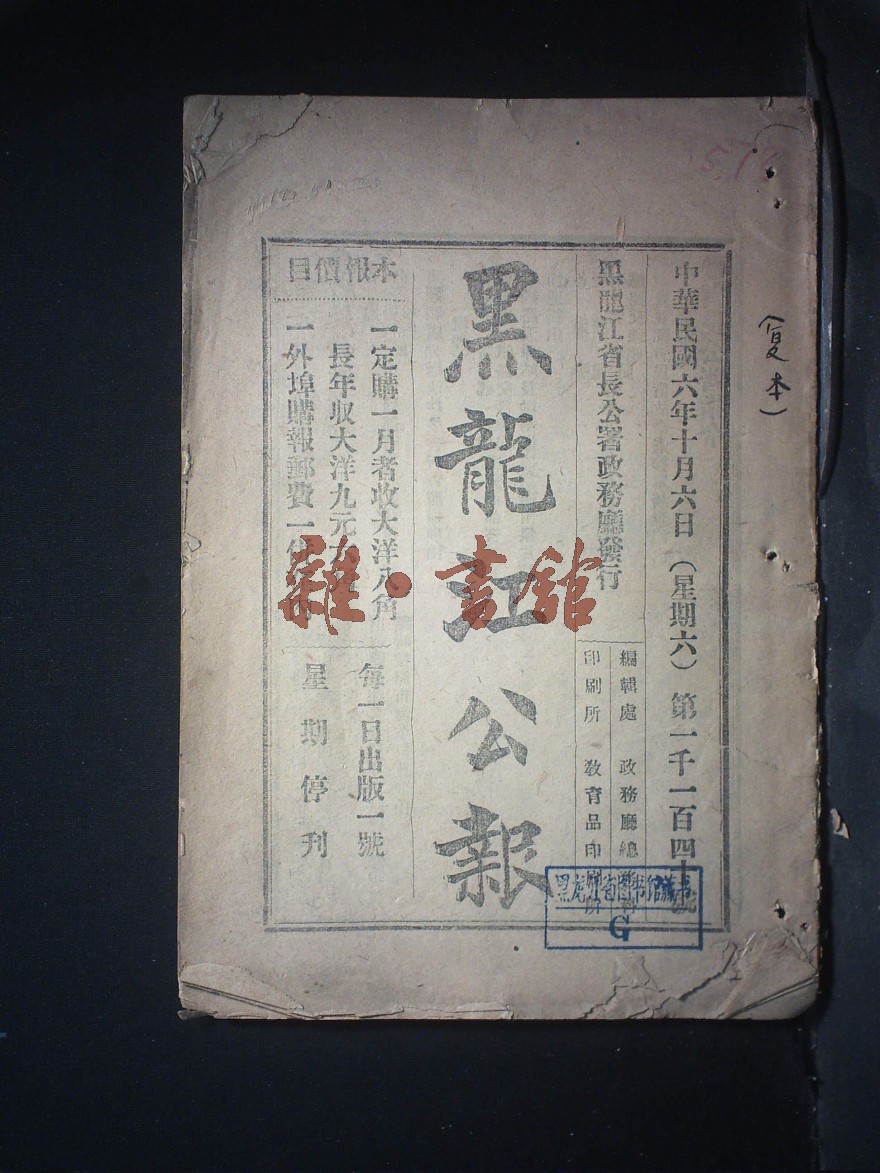 (复本)
中華民國六年十月六日（星期六）第一千一百四十號
黑龍江省長公署政務廳發行
編輯處 政務廳總務科
印刷所 教育品印刷所
黑龍江公報
本報價目
一定購一月者收大洋八角
長年収大洋九元六
一外埠購報郵費一
每一日出版一號
星期停刊
雜·書館
黑龙江省图书馆藏书
G